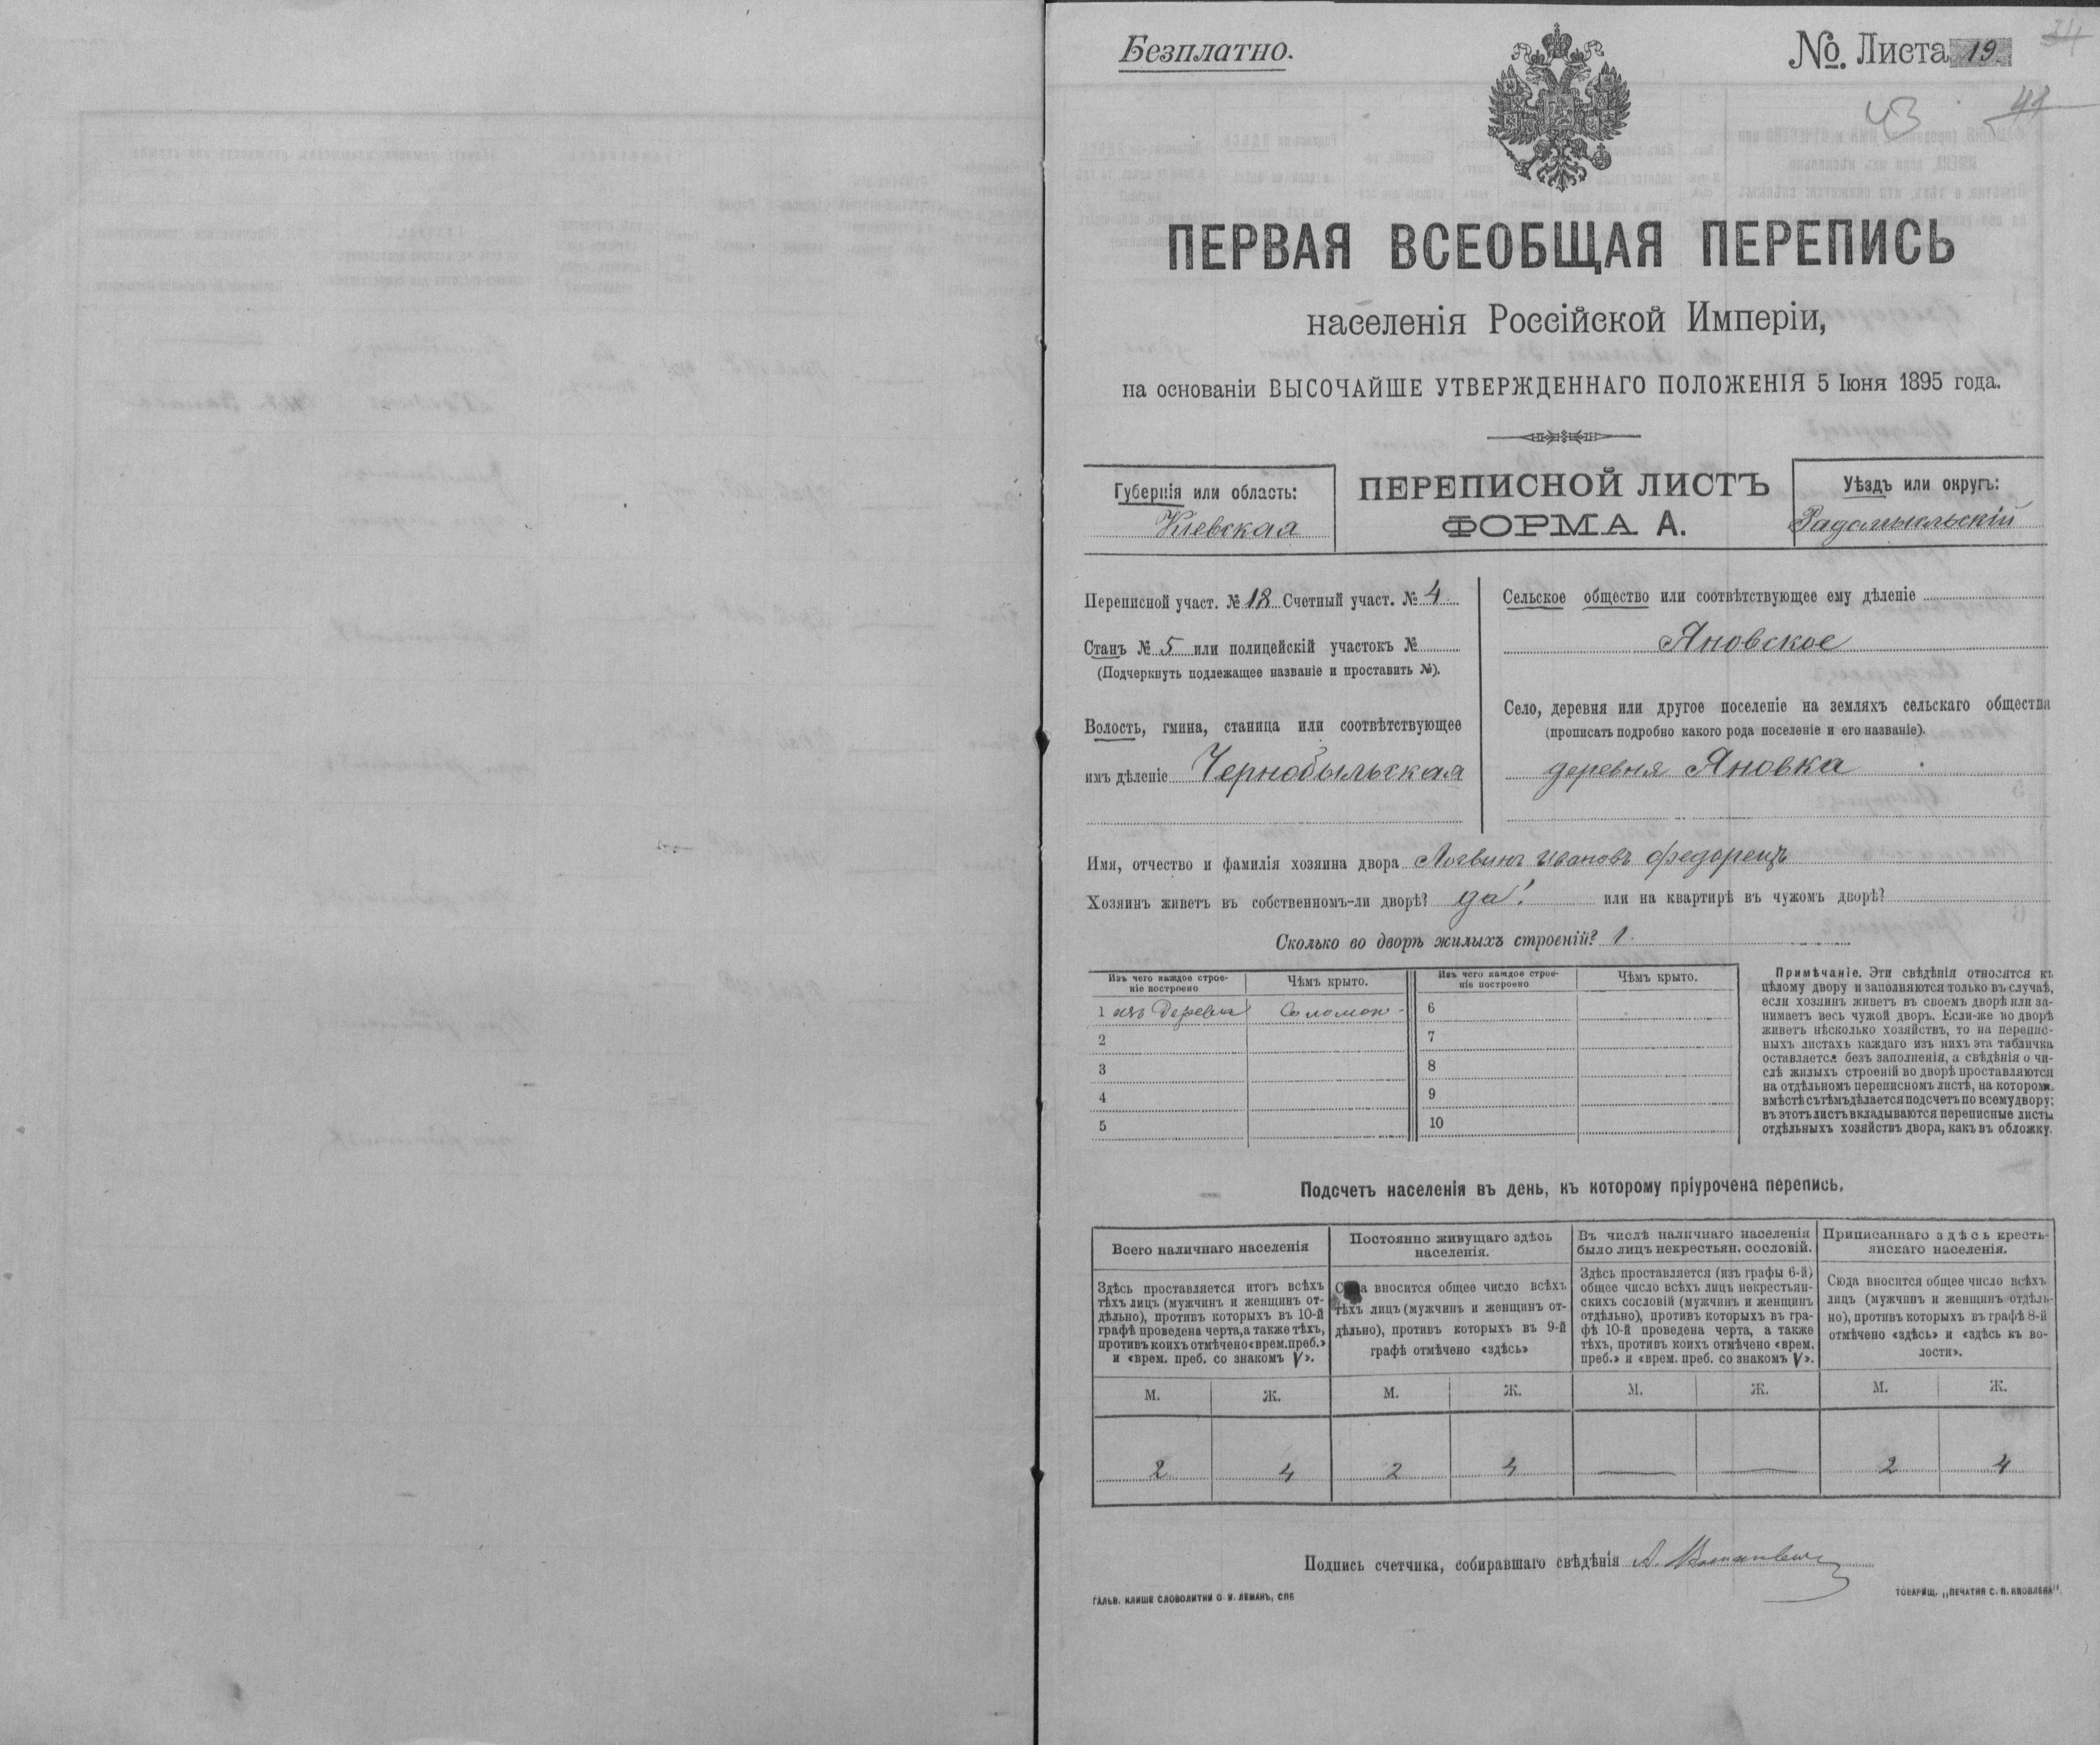 Безплатно.
№. Листа 19.
34
43
41
ПЕРВАЯ ВСЕОБЩАЯ ПЕРЕПИСЬ
населенія Россійской Имперіи,
на основаніи ВЫСОЧАЙШЕ УТВЕРЖДЕННАГО ПОЛОЖЕНІЯ 5 Іюня 1895 года.
Губернія или область:
Кіевская
ПЕРЕПИСНОЙ ЛИСТЪ
ФОРМА А.
Уѣздъ или округъ:
Радомысльскій
Переписной участ. № 18 Счетный участ. № 4
Станъ № 5 или полицейскій участокъ №
(Подчеркнуть подлежащее названіе и проставить №).
Волость, гмина, станица или соотвѣтствующее
имъ дѣленіе Чернобыльская
Сельское общество или соотвѣтствующее ему дѣленіе
Яновское
Село, деревня или другое поселеніе на земляхъ сельскаго общества
(прописать подробно какого рода поселеніе и его названіе).
деревня Яновка
Имя, отчество и фамилія хозяина двора Логвинъ Ивановъ Федоренко
Хозяинъ живетъ въ собственномъ-ли дворѣ? да! или на квартирѣ въ чужомъ дворѣ?
Сколько во дворѣ жилыхъ строеній? 1.
Изъ чего каждое строе-
ніе построено
Чѣмъ крыто.
Изъ чего каждое строе-
ніе построено
Чѣмъ крыто.
1 изъ дерева Соломою 6
2 7
3 8
4 9
5 10
Примѣчаніе. Эти свѣдѣнія относятся къ
цѣлому двору и заполняются только въ случаѣ,
если хозяинъ живетъ въ своемъ дворѣ или за-
нимаетъ весь чужой дворъ. Если-же во дворѣ
живетъ нѣсколько хозяйствъ, то на перепис-
ныхъ листахъ каждаго изъ нихъ эта табличка
оставляется безъ заполненія, а свѣдѣнія о чи-
слѣ жилыхъ строеній во дворѣ проставляются
на отдѣльномъ переписномъ листѣ, на которомъ
вмѣстѣ съ тѣмъ дѣлается подсчетъ по всему двору;
въ этотъ листъ вкладываются переписные листы
отдѣльныхъ хозяйствъ двора, какъ въ обложку.
Подсчетъ населенія въ день, къ которому пріурочена перепись.
Всего наличнаго населенія
Здѣсь проставляется итогъ всѣхъ
тѣхъ лицъ (мужчинъ и женщинъ от-
дѣльно), противъ которыхъ въ 10-й
графѣ проведена черта, а также тѣхъ,
противъ коихъ отмѣчено «врем. преб.»
и «врем. преб. со знакомъ V».
Постоянно живущаго здѣсь
населенія.
Сюда вносится общее число всѣхъ
тѣхъ лицъ (мужчинъ и женщинъ от-
дѣльно), противъ которыхъ въ 9-й
графѣ отмѣчено «здѣсь»
Въ числѣ наличнаго населенія
было лицъ некрестьян. сословій.
Здѣсь проставляется (изъ графы 6-й)
общее число всѣхъ лицъ некрестьян-
скихъ сословій (мужчинъ и женщинъ
отдѣльно), противъ которыхъ въ гра-
фѣ 10-й проведена черта, а также
тѣхъ, противъ коихъ отмѣчено «врем.
преб.» и «врем. преб. со знакомъ V».
Приписаннаго здѣсь кресть-
янскаго населенія.
Сюда вносится общее число всѣхъ
лицъ (мужчинъ и женщинъ отдѣль-
но), противъ которыхъ въ графѣ 8-й
отмѣчено «здѣсь» и «здѣсь къ во-
лости».
М. Ж. М. Ж. М. Ж. М. Ж.
2 4 2 4 — — 2 4
Подпись счетчика, собиравшаго свѣдѣнія А.
ГАЛЬВ. КЛИШЕ СЛОВОЛИТНИ О. И. ЛЕМАНЪ, СПБ
ТОВАРИЩ. „ПЕЧАТНЯ С. П. ЯКОВЛЕВА"